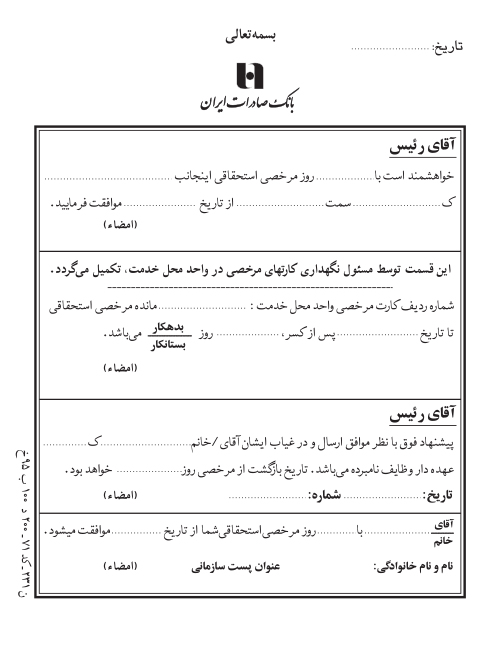 بسمه‌تعالی
تاریخ: ..........................
بانک صادرات ایران
آقای رئیس
خواهشمند است با ................... روز مرخصی استحقاقی اینجانب ..........................................
ک ............................. سمت ............................. از تاریخ ........................ موافقت فرمایید.
(امضاء)
این قسمت توسط مسئول نگهداری کارتهای مرخصی در واحد محل خدمت، تکمیل می‌گردد.
شماره ردیف کارت مرخصی واحد محل خدمت : ............................. مانده مرخصی استحقاقی
تا تاریخ ........................... پس از کسر، ..................... روز بدهکار / بستانکار می‌باشد.
(امضاء)
آقای رئیس
پیشنهاد فوق با نظر موافق ارسال و در غیاب ایشان آقای /خانم .............................. ک ..............
عهده دار وظایف نامبرده می‌باشد. تاریخ بازگشت از مرخصی روز ..................... خواهد بود.
تاریخ: .......................... شماره: .......................... (امضاء)
آقای / خانم ...................... با ............. روز مرخصی استحقاقی شما از تاریخ ................ موافقت میشود.
نام و نام خانوادگی: عنوان پست سازمانی (امضاء)